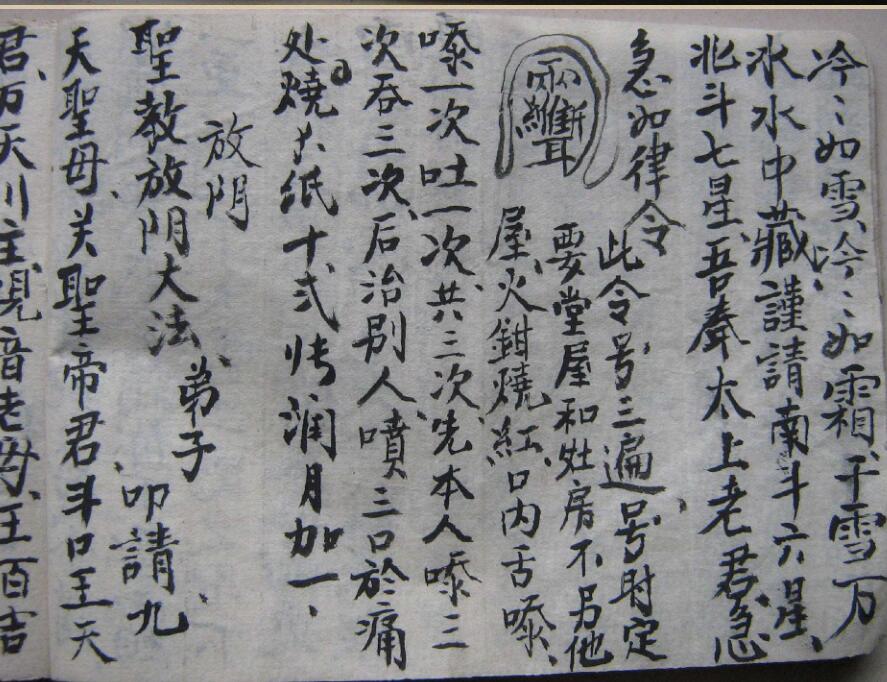 冷〻如雪、冷〻如霜、千雪万
冰水中藏謹請南斗六星、
北斗七星、吾奉太上老君、急
急如律令
此令号三遍、号时定
要堂屋和灶房不另他
屋、火鉗燒紅、口内舌嚓、
嚓一次吐一次、共三次、先本人嚓三
次吞三次、后治别人噴三口於痛
处燒纸十弍张润月加一、
放阴
聖教放阴大法、弟子
叩請九、
天聖母、关聖帝君、斗口王天
君、万天川主、观音老母、王百吉